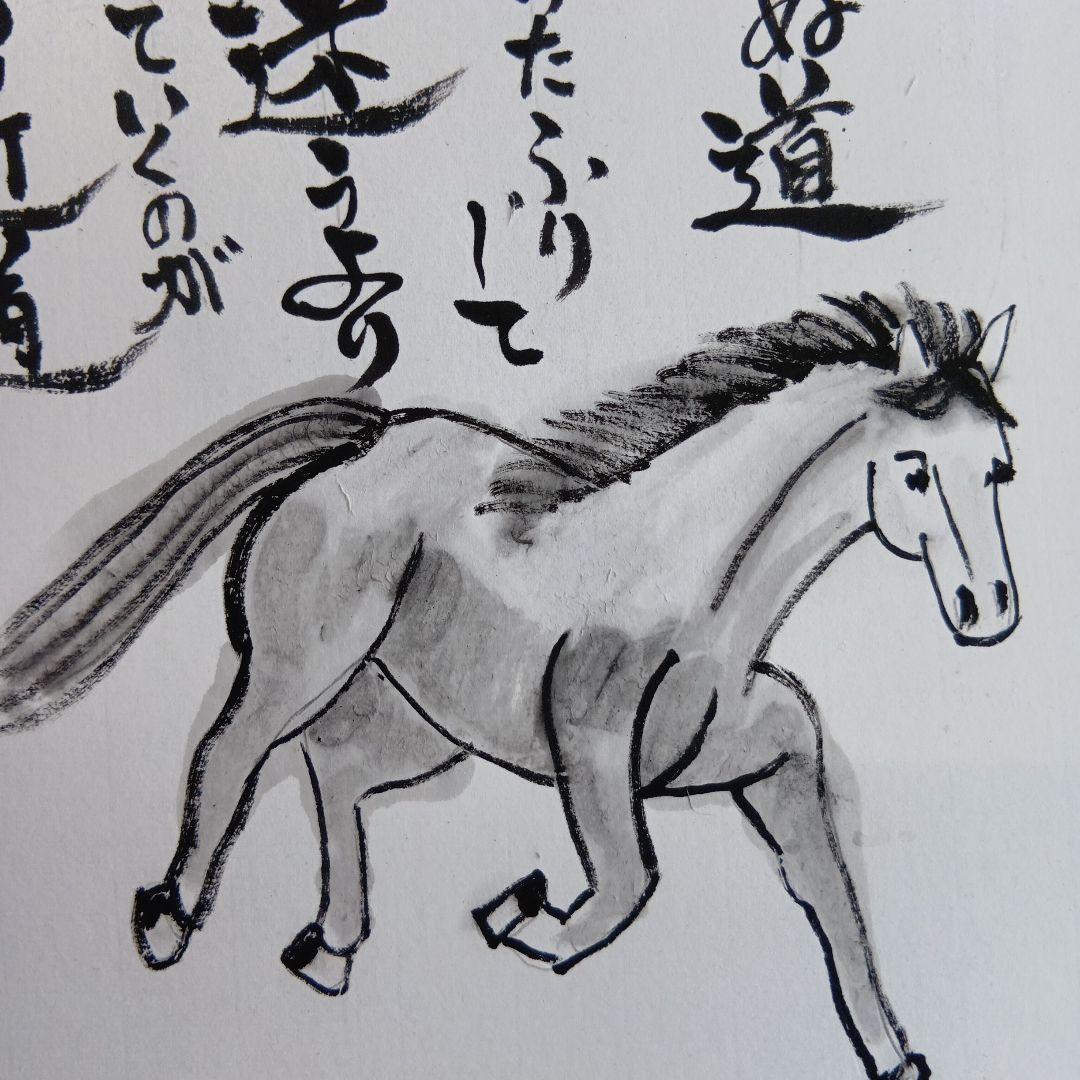 ぬ道
たふり
じて
迷うより
ていくのが